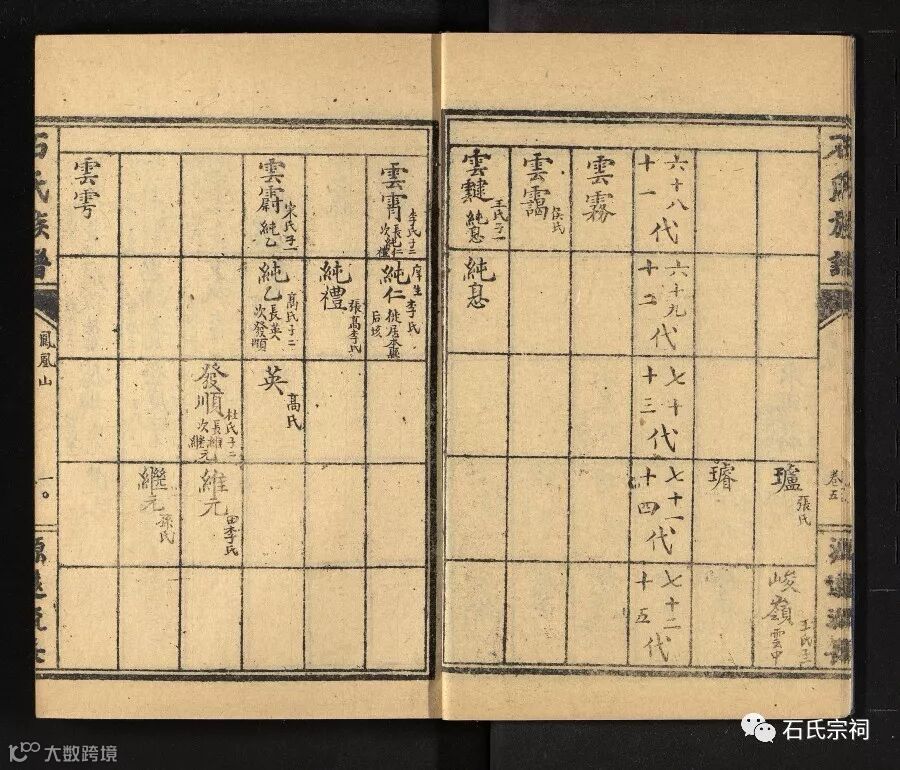 石氏族譜
卷五
瓐 張氏
峻嶺 王氏子一 雲中
璿
六十八代
十一
六十九代
十二
七十代
十三
七十一代
十四
七十二代
十五
雲霧
雲靄 侯氏
雲靆 王氏子一 純息
純息
雲霄 李氏子二 長純仁 次禮
純仁 庠生 李氏 徙居 后垓
純禮 張高李氏
雲霨 宋氏子一 純乙
純乙 高氏子二 長英 次發順
英 高氏
發順 杜氏子二 長維元 次繼元
維元 田李氏
繼元 孫氏
雲雩
石氏族譜
鳳凰山
一〇
石氏宗祠
大数跨境